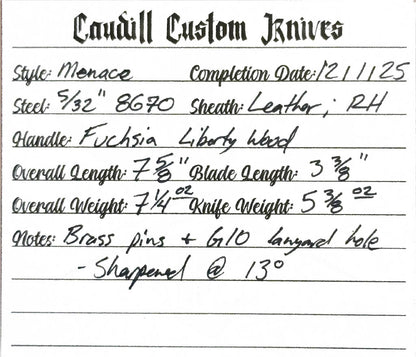 Caudill Custom Knives
Style: Menace Completion Date: 12/1/25
Steel: 5/32" 8670 Sheath: Leather; RH
Handle: Fuchsia Liberty Wood
Overall Length: 7 5/8" Blade Length: 3 3/8"
Overall Weight: 7 1/4 oz Knife Weight: 5 3/8 oz
Notes: Brass pins + G10 lanyard hole
- Sharpened @ 13°